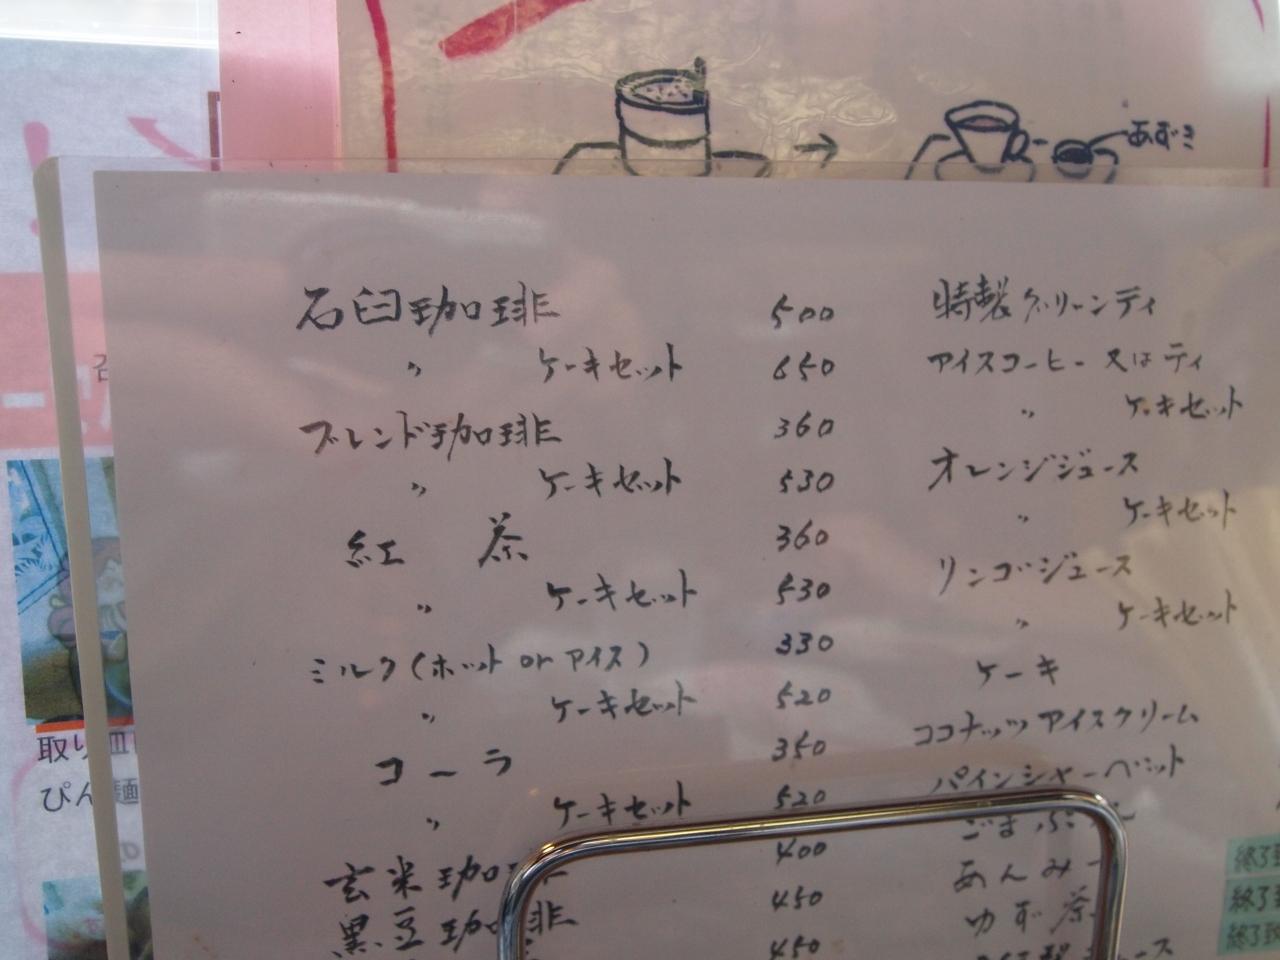 あずき
石臼珈琲 500
〃 ケーキセット 650
ブレンド珈琲 360
〃 ケーキセット 530
紅 茶 360
〃 ケーキセット 530
ミルク(ホット or アイス) 330
〃 ケーキセット 520
コーラ 350
〃 ケーキセット 520
玄米珈 400
黒豆珈琲 450
450
特製グリーンティ
アイスコーヒー又はティ
〃 ケーキセット
オレンジジュース
〃 ケーキセット
リンゴジュース
〃 ケーキセット
ケーキ
ココナッツアイスクリーム
パインシャーベット
あんみ
ゆず茶
取り皿
ぴん 麺
終了致
終了致
終了致